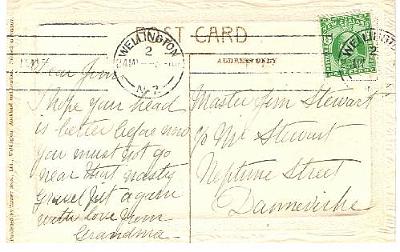 POST CARD
ADDRESS ONLY
WELLINGTON
2
N.Z.
WELLINGTON
2
Dear Jim
I hope your head
is better before now
you must not go
near that nasty
gravel pit again
with love from
Grandma
Master Jim Stewart
c/o Mr Stewart
Neptune Street
Dannevirke